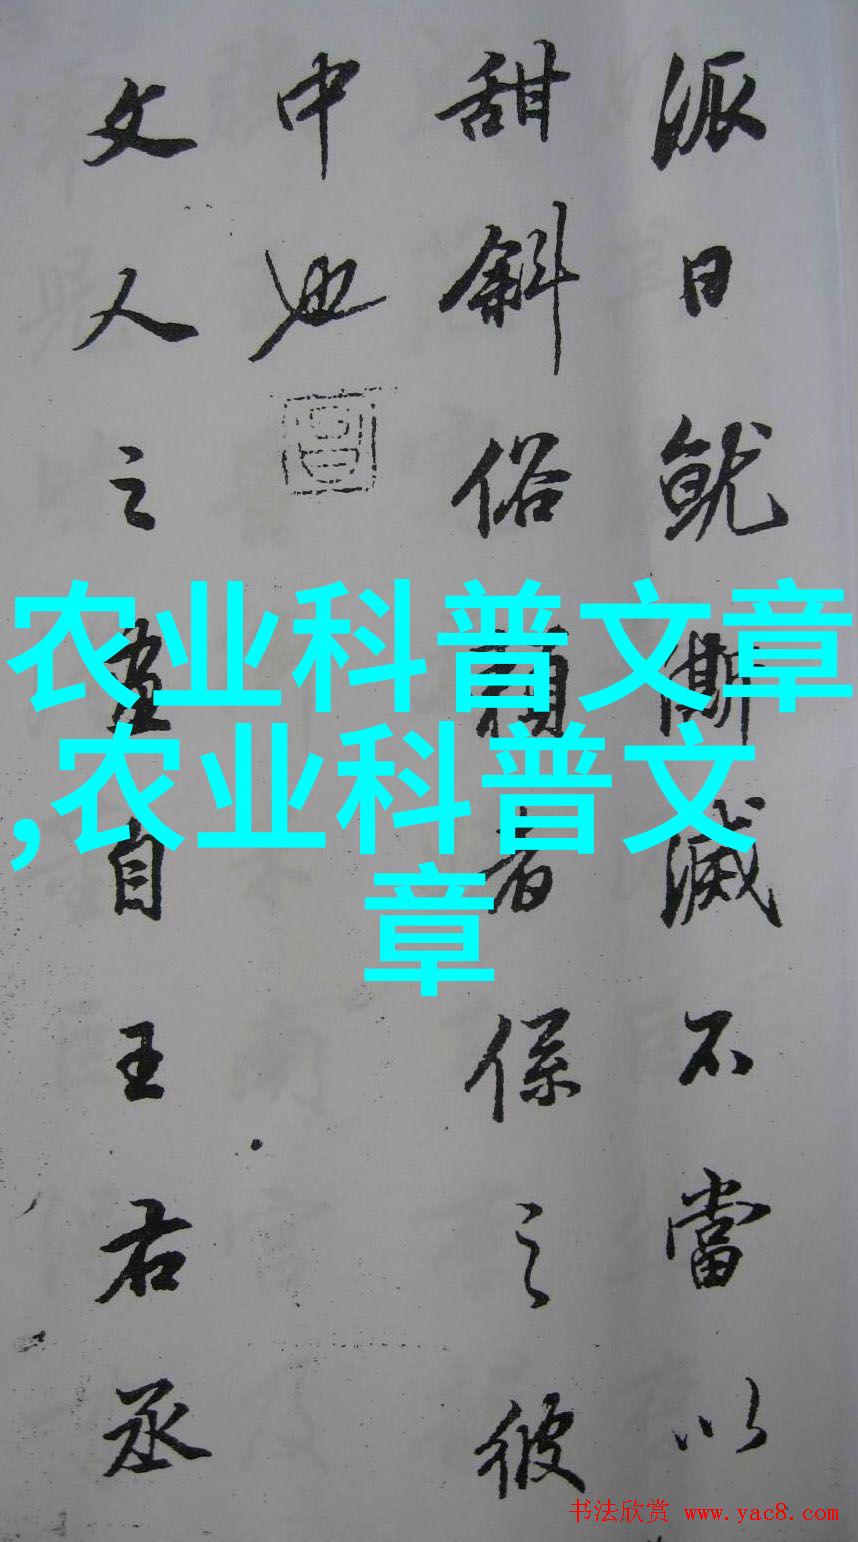 派日就澌滅不當以
甜斜俗賴者係之彼
中也
文人之畫自王右丞
农业科普文章
,农业科普文
章
书法欣赏 www.yac8.com